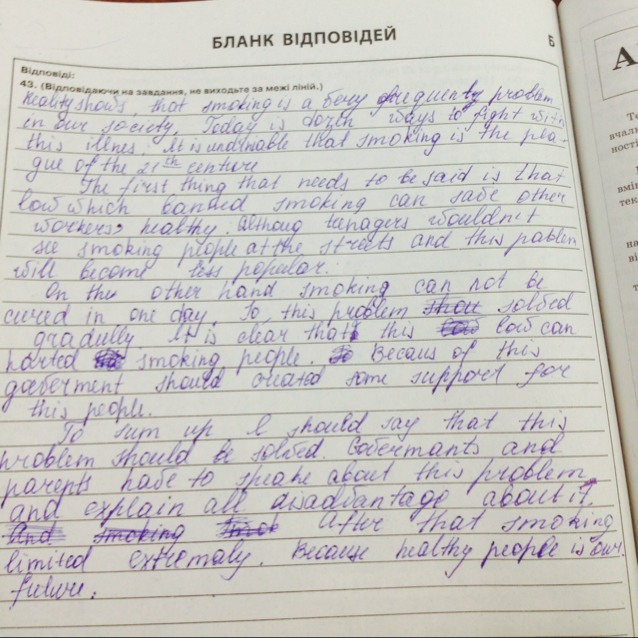 БЛАНК ВІДПОВІДЕЙ
Б
Відповіді:
43. (Відповідаючи на завдання, не виходьте за межі ліній.)
Reality shows, that smoking is a very frequently problem
in our society. Today is dozen ways to fight with
this illnes. It is undinable that smoking is the pla-
gue of the 21st centure
The first thing that needs to be said is that
low which banned smoking can save other
workers healthy. Althoug teenagers wouldn't
see smoking people at the streets and this pablem
will become less popular.
On the other hand smoking can not be
cured in one day. So, this problem solved
gradully. It is clear that this low can
harted smoking people. Becaus of this
goverment should created some support for
this people.
To sum up I should say that this
problem should be solved. Govermants and
parents have to speake about this problem
and explain all disadvantage about it.
After that smoking
limited extremaly. Because healthy people is our
future.
А
Те
вчалі
ності
вмін
тек
на
ві
т